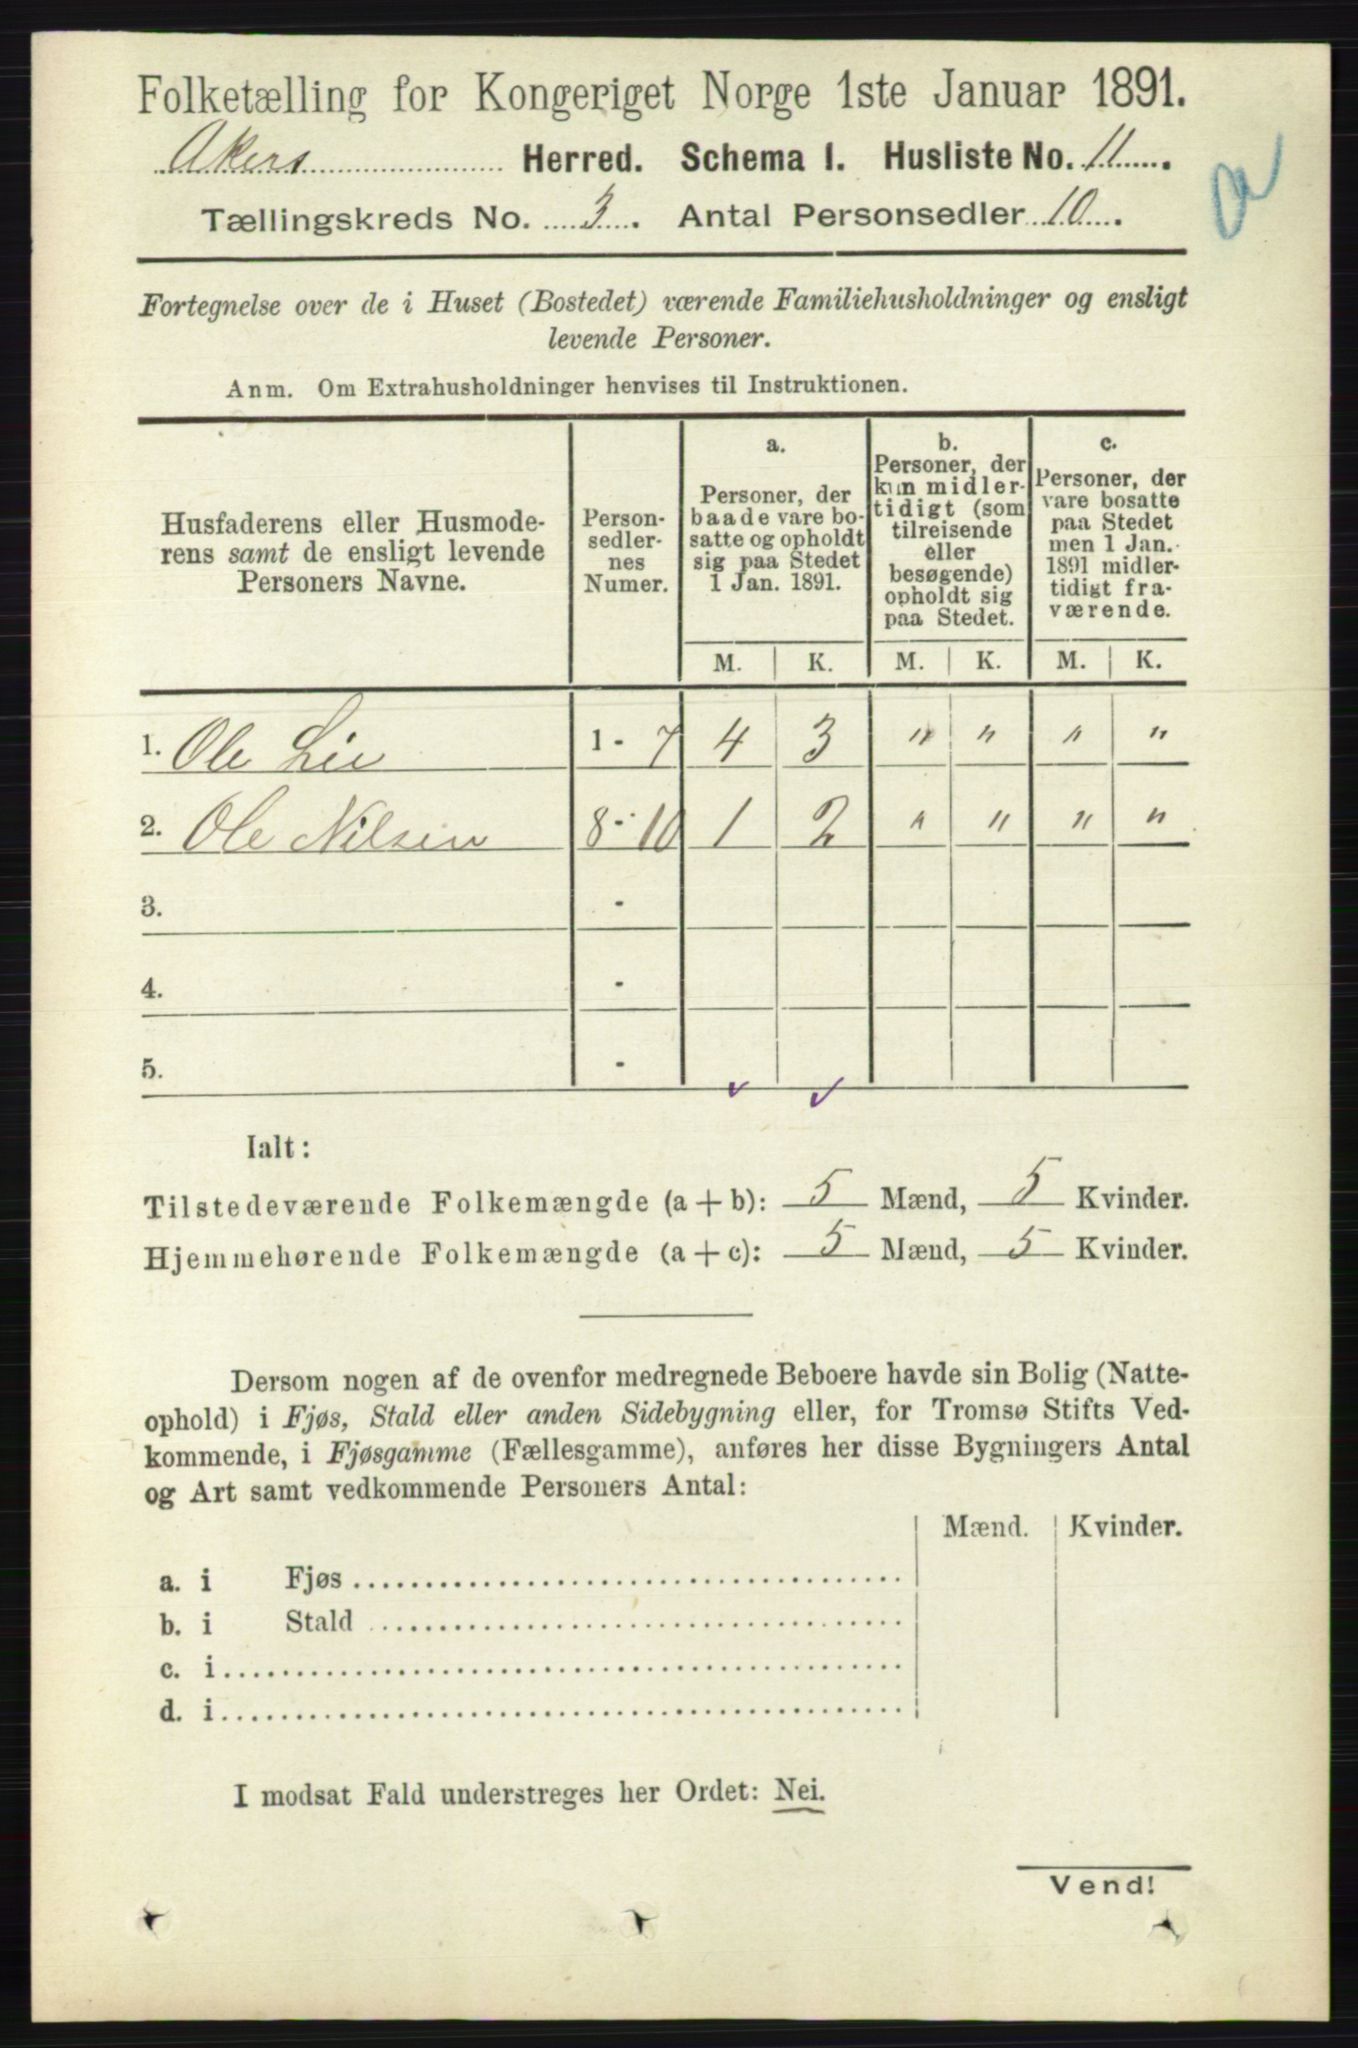 Folketælling for Kongeriget Norge 1ste Januar 1891.
Akers Herred. Schema I. Husliste No. 11.
Tællingskreds No. 3. Antal Personsedler 10.
Fortegnelse over de i Huset (Bostedet) værende Familiehusholdninger og ensligt
levende Personer.
Anm. Om Extrahusholdninger henvises til Instruktionen.
Husfaderens eller Husmode-
rens samt de ensligt levende
Personers Navne.
Person-
sedler-
nes
Numer.
a.
Personer, der
baade vare bo-
satte og opholdt
sig paa Stedet
1 Jan. 1891.
b.
Personer, der
kun midler-
tidigt (som
tilreisende
eller
besøgende)
opholdt sig
paa Stedet.
c.
Personer, der
vare bosatte
paa Stedet
men 1 Jan.
1891 midler-
tidigt fra-
værende.
M. K. M. K. M. K.
1. Ole Lie 1 - 7 4 3 " " " "
2. Ole Nilsen 8 - 10 1 2 " " " "
3. -
4. -
5. -
Ialt:
Tilstedeværende Folkemængde (a + b): 5 Mænd, 5 Kvinder.
Hjemmehørende Folkemængde (a + c): 5 Mænd, 5 Kvinder.
Dersom nogen af de ovenfor medregnede Beboere havde sin Bolig (Natte-
ophold) i Fjøs, Stald eller anden Sidebygning eller, for Tromsø Stifts Ved-
kommende, i Fjøsgamme (Fællesgamme), anføres her disse Bygningers Antal
og Art samt vedkommende Personers Antal:
Mænd. Kvinder.
a. i Fjøs
b. i Stald
c. i
d. i
I modsat Fald understreges her Ordet: Nei.
Vend!